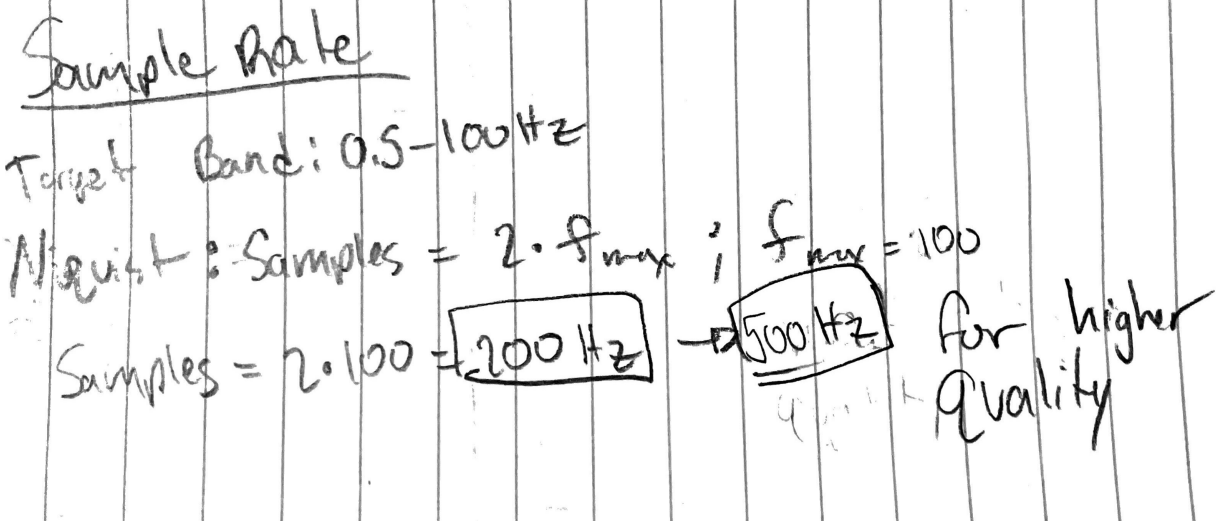 Sample Rate
Target Band: 0.5-100Hz
Niquist: Samples = 2·fmax ; fmax = 100
Samples = 2·100 = 200 Hz → 500 Hz for higher
quality